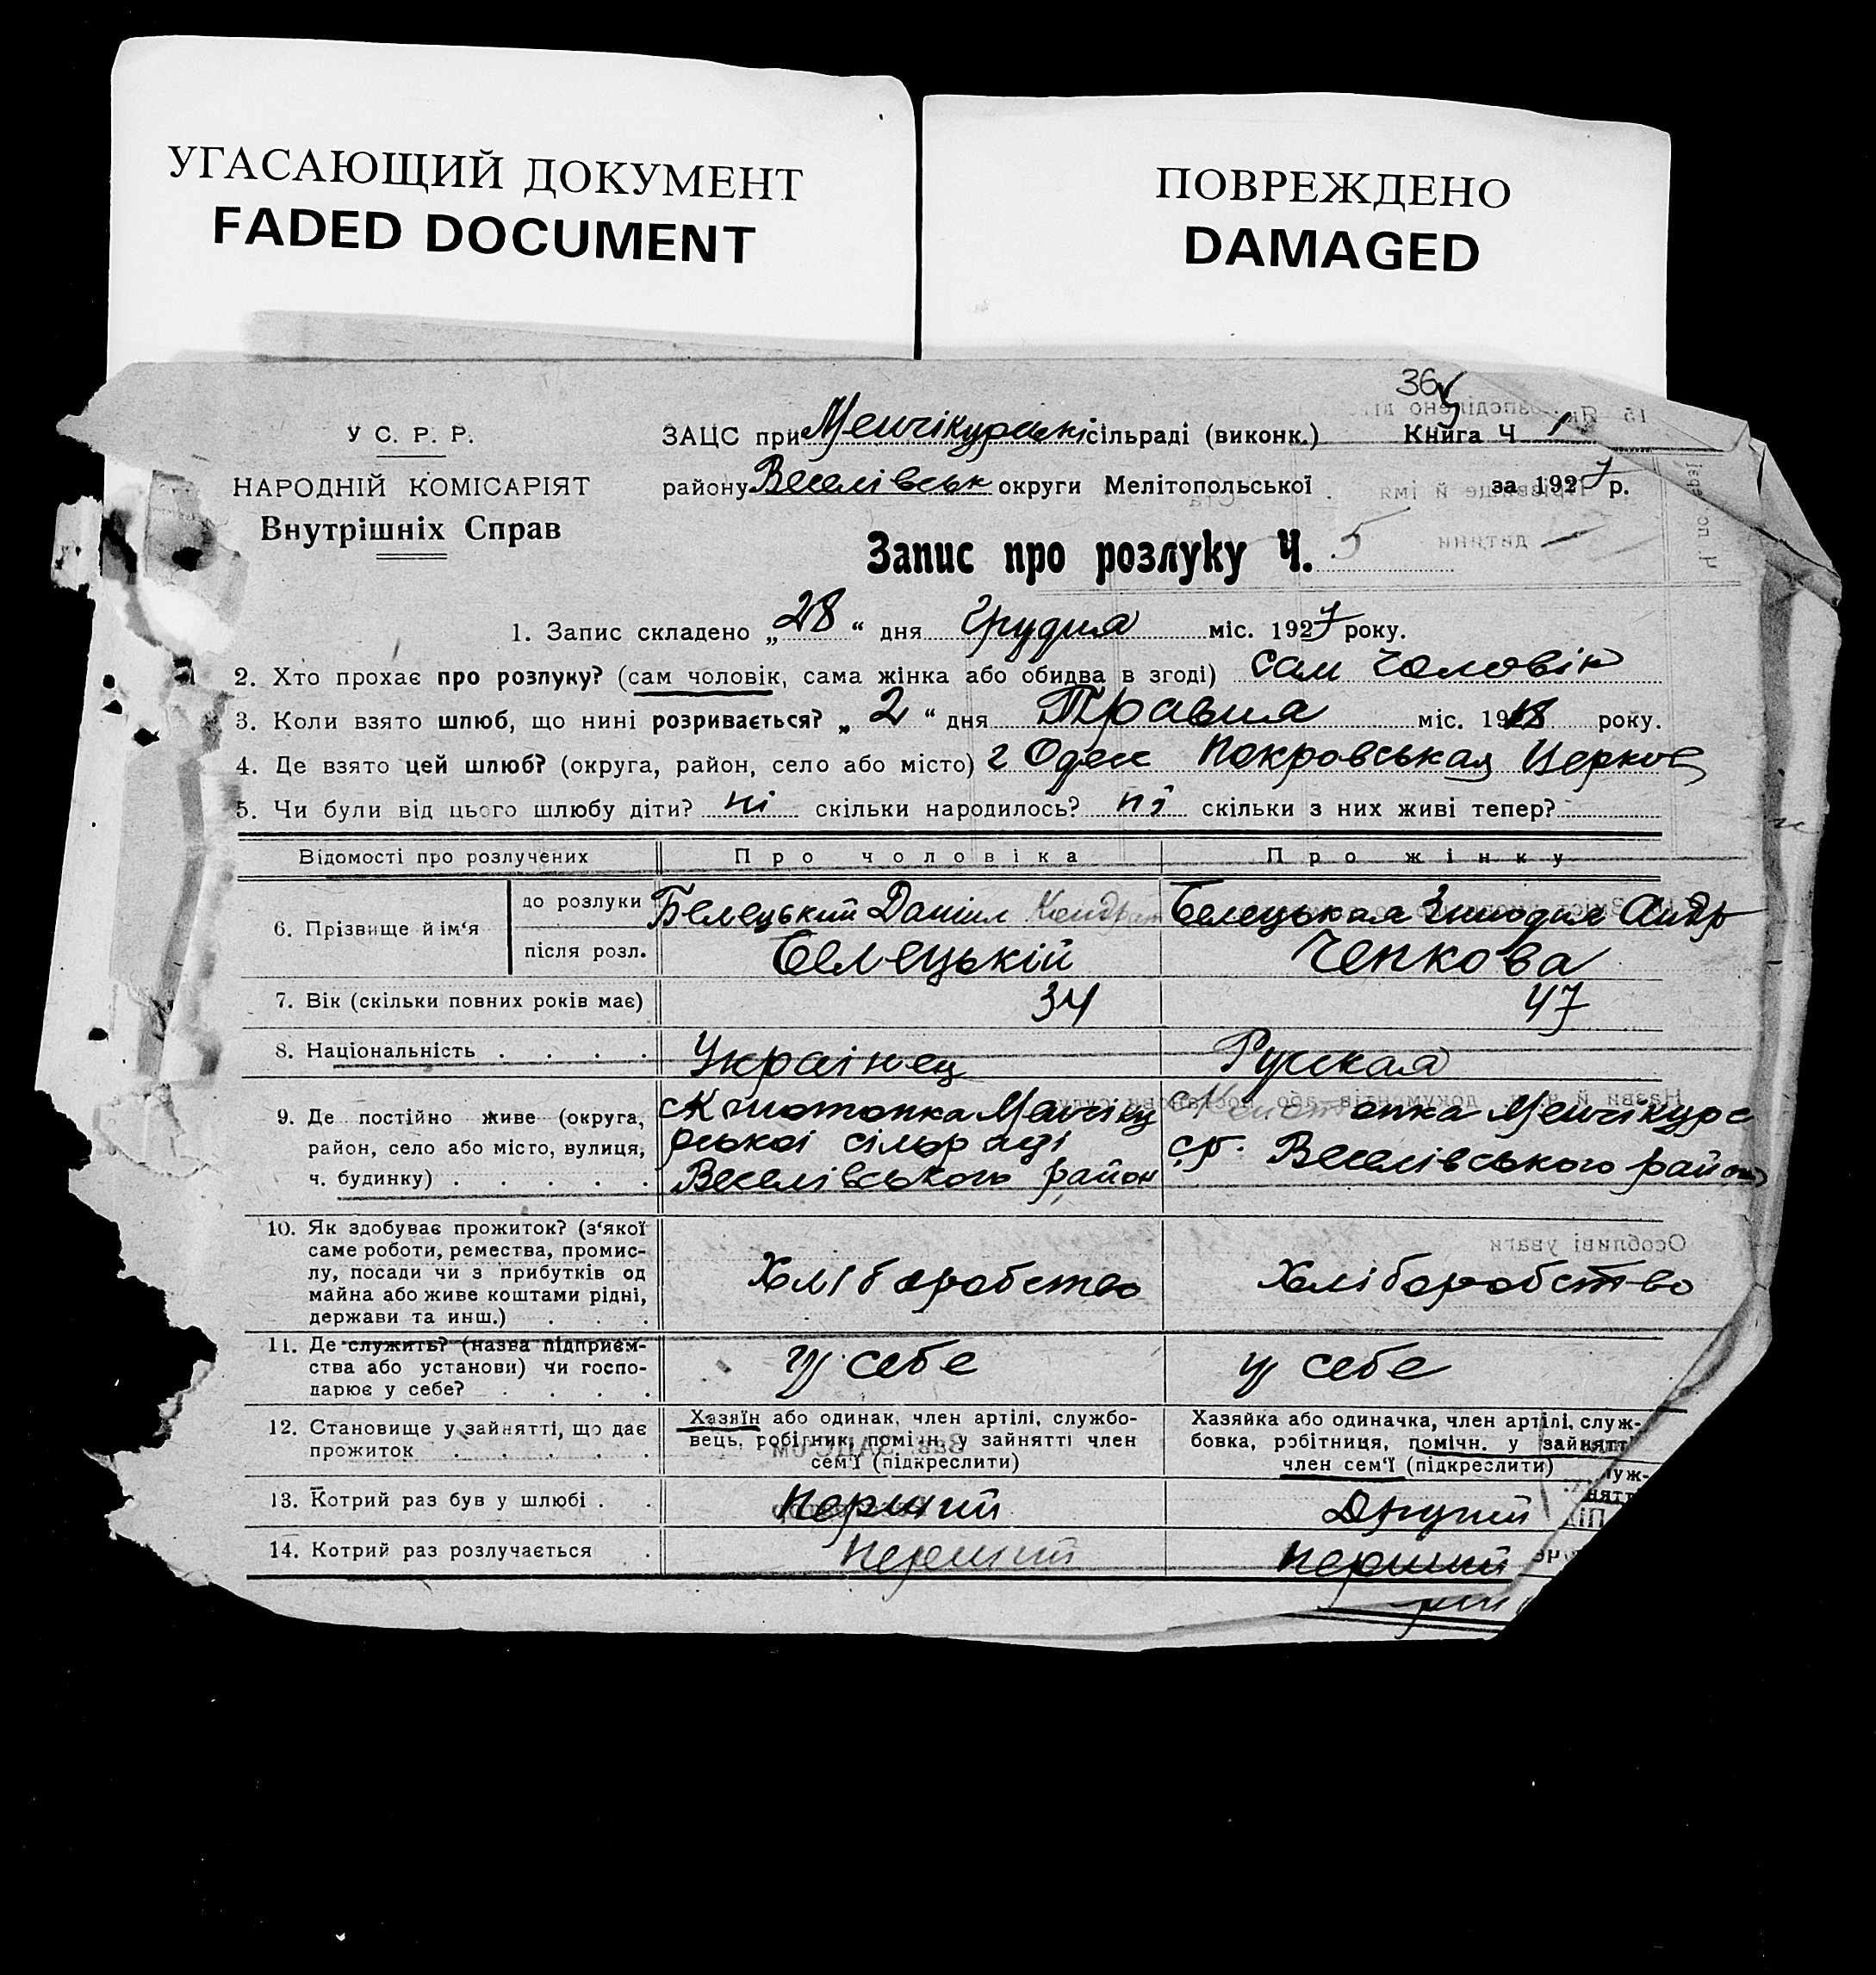 УГАСАЮЩИЙ ДОКУМЕНТ
FADED DOCUMENT
ПОВРЕЖДЕНО
DAMAGED
36
У С. Р. Р.
НАРОДНІЙ КОМІСАРІЯТ
Внутрішніх Справ
ЗАЦС при Менчікуровскі сільраді (виконк.) Книга Ч 1
району Веселівськ округи Мелітопольської за 1927 р.
Запис про розлуку Ч. 5
1. Запис складено „28“ дня Грудня міс. 1927 року.
2. Хто прохає про розлуку? (сам чоловік, сама жінка або обидва в згоді) сам чоловік
3. Коли взято шлюб, що нині розривається? „2“ дня Травня міс. 1918 року.
4. Де взято цей шлюб? (округа, район, село або місто) г Одес Покровськая Церков
5. Чи були від цього шлюбу діти? ні скільки народилось? ні скільки з них живі тепер?
Відомості про розлучених Про чоловіка Про жінку
6. Прізвище й ім‘я до розлуки Белецький Даніил Кондрат Белецькая Зинодия Андр
після розл. Белецькій Чепкова
7. Вік (скільки повних років має) 34 47
8. Національність Украінец Руская
9. Де постійно живе (округа, район, село або місто, вулиця, ч. будинку)
Менчікур
ської сільради
Веселівського район
опка Менчікурс
с/р. Веселівського район
10. Як здобуває прожиток? (з‘якої
саме роботи, ремества, промис-
лу, посади чи з прибутків од
майна або живе коштами рідні,
держави та инш.)
Хліборобство Хліборобство
11. Де служить? (назва підприєм-
ства або установи) чи госпо-
дарює у себе?
у себе у себе
12. Становище у зайнятті, що дає
прожиток
Хазяїн або одинак, член артілі, службо-
вець, робігник, помічн. у зайнятті член
сем‘ї (підкреслити)
Хазяйка або одиначка, член артілі, служ-
бовка, робітниця, помічн. у зайнятт
член сем‘ї (підкреслити)
13. Котрий раз був у шлюбі Перший Другий
14. Котрий раз розлучається перший перший